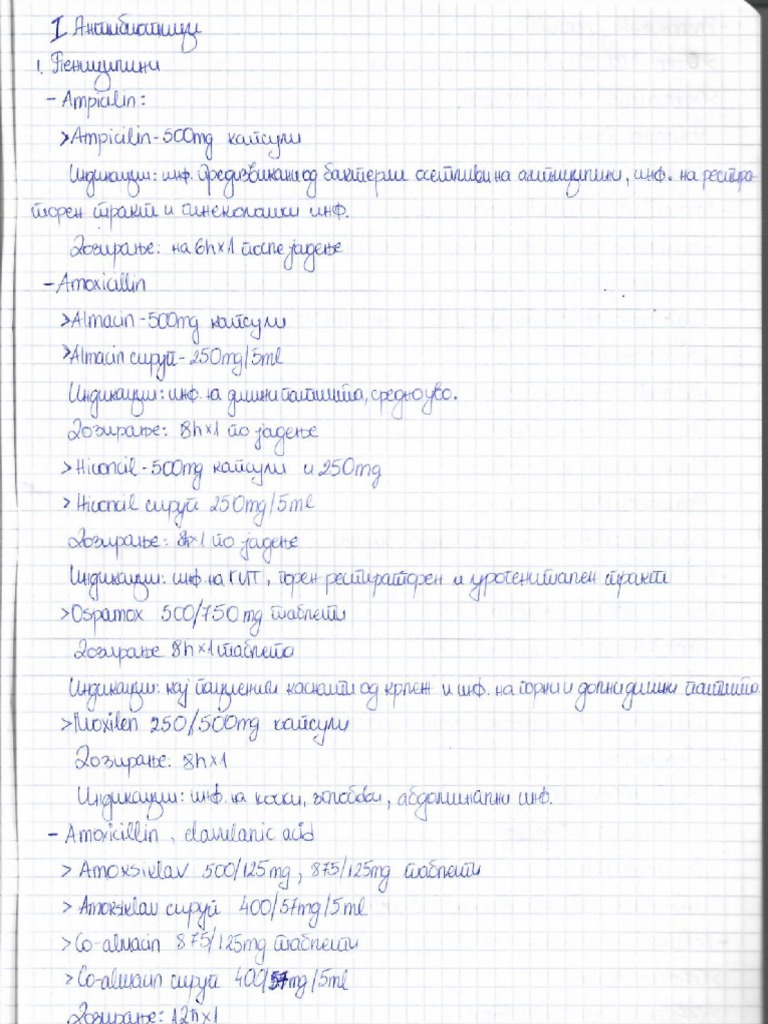 I Антибиотици
1. Пеницилини
- Ampicilin:
>Ampicilin-500mg капсули
Индикации: инф. предизвикани од бактерии осетливи на ампицилини, инф. на респира
торен тракт и гинеколошки инф.
Дозирање: на 6h×1 после јадење
- Amoxicillin
>Almacin-500mg капсули
>Almacin сируп- 250mg/5ml
Индикации: инф. на дишни патишта, средно уво.
Дозирање: 8h×1 по јадење
>Hiconcil-500mg капсули и 250mg
> Hiconcil сируп 250mg/5ml
Дозирање: 8h×1 по јадење
Индикации: инф. на ГИТ, горен респираторен и урогенитален тракт
>Ospamox 500/750mg таблети
Дозирање 8h×1 таблета
Индикации: кај пациенти каснати од крлеж и инф. на горни и долни дишни патишта.
250/500mg капсули
Дозирање: 8h×1
Индикации: инф. на коски, зглобови, абдоминални инф.
- Amoxicillin, clavulanic acid
> Amoksiklav 500/125mg, 875/125mg таблети
> Amoksiklav сируп 400/57mg/5ml
> Co-almacin 875/125mg таблети
> Co-almacin сируп 400/57mg/5ml
Дозирање: 12h×1